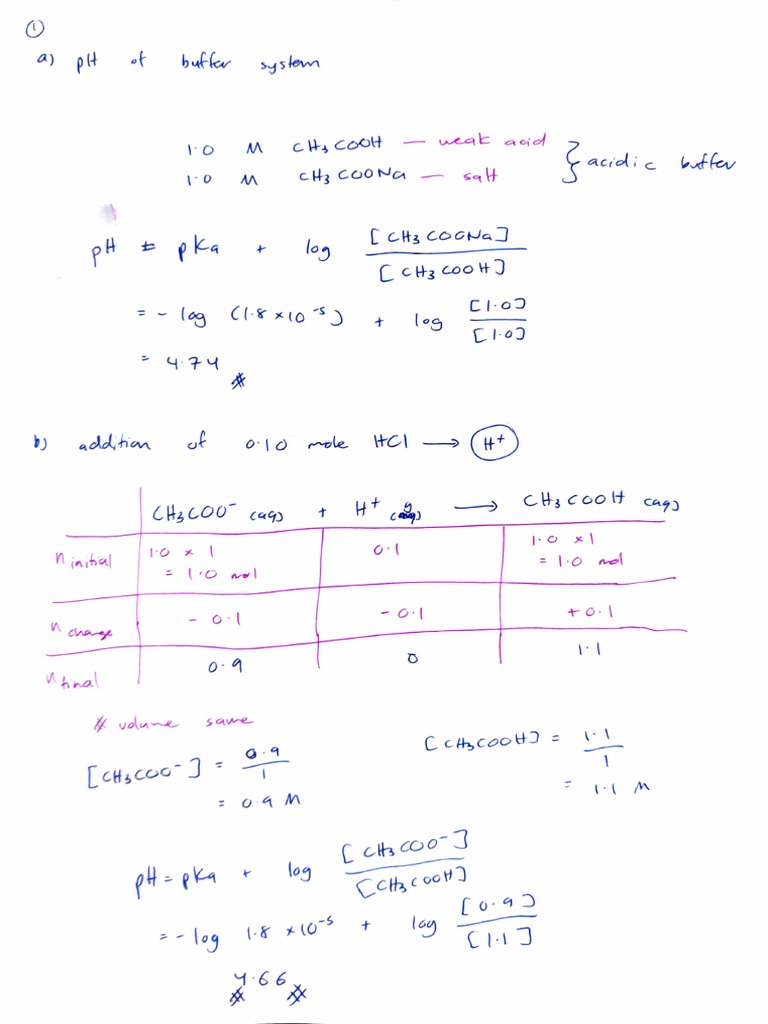 ①
a) pH of buffer system
1.0 M CH₃COOH — weak acid
1.0 M CH₃COONa — salt
} acidic buffer
pH = pKa + log [CH₃COONa] / [CH₃COOH]
= - log (1.8 × 10⁻⁵) + log [1.0] / [1.0]
= 4.74 #
b) addition of 0.10 mole HCl ⟶ H⁺
CH₃COO⁻ (aq) + H⁺ (g) ⟶ CH₃COOH (aq)
n initial 1.0 × 1 = 1.0 mol 0.1 1.0 × 1 = 1.0 mol
n change - 0.1 - 0.1 + 0.1
n final 0.9 0 1.1
# volume same
[CH₃COO⁻] = 0.9 / 1 [CH₃COOH] = 1.1 / 1
= 0.9 M = 1.1 M
pH = pKa + log [CH₃COO⁻] / [CH₃COOH]
= - log 1.8 × 10⁻⁵ + log [0.9] / [1.1]
4.66